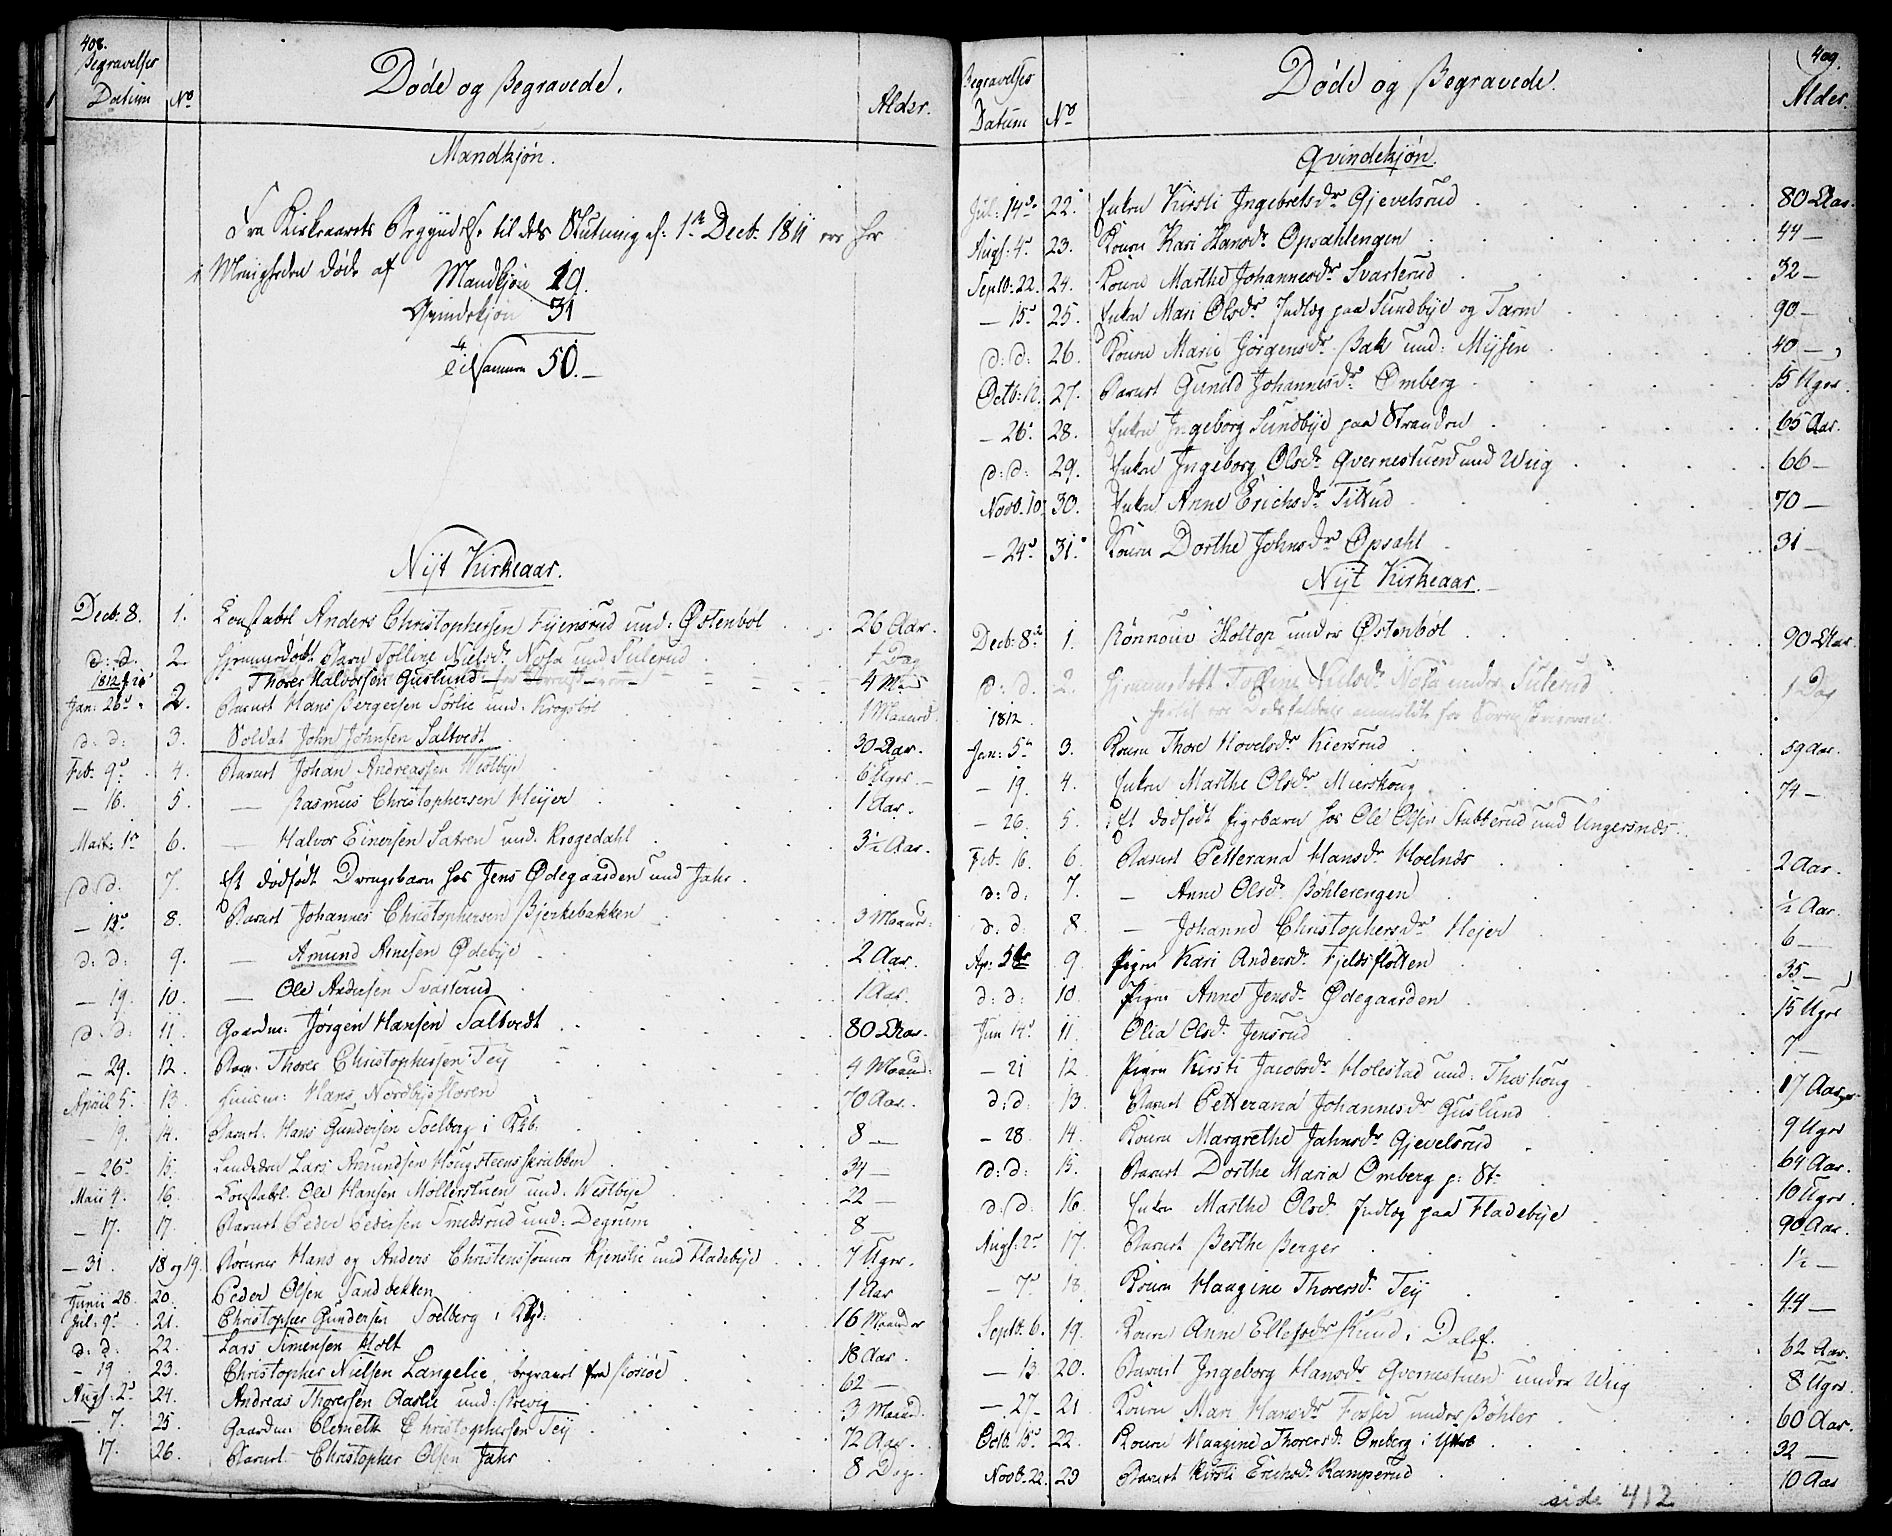 408.
Begravelses Datum No Døde og Begravede. Alder.
Mandkjøn.
Fra Kirkeaarets Begyndelse til dets Slutning d: 1te Decb. 1811 ere her
i Menigheden døde af Mandkjøn 19.
Qvindekjøn 31
Tilsammen 50.
Nyt Kirkeaar.
Decb. 8. 1. Constabel Anders Christophersen und: Østenbøl 26 Aar.
d: d. 2. Hjemmedøbt Tolline Nielsdr. Nøsa und Sulerud 1 Dag
1812 Thorer Halvorsen Guslund 4 Maan
Jan: 26d 2. Barnet Hans Bergersen Sørlie und. Krogsbøl 1 Maaned
d: d: 3. Soldat John Johnsen Saltvedt 30 Aar.
Feb. 9d 4. Barnet Johan Andreassen Westbye 6 Uger
— 16. 5. — Rasmus Christophersen Heyer 1 Aar.
Mart: 1d 6. — Halvor Einersen Satren und. Krogedahl 3½ Aar.
d: d. 7. Et dødfødt Drengebarn hos Jens Ødegaarden und Jahr.
— 8. Barnet Johannes Christophersen Bjerkebakken 3 Maaned:
d: d: 9. — Amund Arnesen Ødebye 2 Aar.
— 19. 10. — Ole Andersen Svarterud 1 Aar.
d: d: 11. Gaardm: Jørgen Hansen Saltvedt 80 Aar.
— 29. 12. Barn. Thorer Christophersen Tey 4 Maaned:
April 5. 13. Huusm: Hans Nordbyefloren 70 Aar.
— 19. 14. Barnet. Hans Gundersen Soelberg i 8 —
— 26d 15. Lars Amundsen Hougsteenskrabben 34 —
Maii 4. 16. Constabel. Ole Hansen Møllerstuen und. Westbye 22 —
— 17. 17. Barnet Peder Pedersen Smedsrud und: Degrum 8 —
— 31. 18 og 19. Hans og Anders und Fladebye 7 Uger.
Junii 28. 20. Peder Olsen Sandbekken 1 Aar
Jul: 9d 21. Christopher Gundersen Soelberg i 16 Maaneder
d: d. 22. Lars Simensen Holt 18 Aar.
— 19 23. Christopher Nielsen Langelie, begravet fra 62 —
Augs. 2d 24. Andreas Thoresen Aaslie und: 3 Maaned.
— 7. 25 Gaardm: Clemeth Christophersen Tey 72 Aar.
— 17. 26. Barnet Christopher Olsen Jahr 8 Dage.
409.
Begravelses Datum No Døde og Begravede. Alder.
Qvindekjøn.
Jul: 14d 22. Enken Kirsti Ingebretsdr. Gjevelsrud 80 Aar.
Augs: 4d 23. Konen Kari Hansdr. Opsahlengen 44 —
Septb. 22. 24. Konen Marthe Johannesdr. Svarterud 32 —
— 15d 25. Enken Mari Olsdr. Indlæg paa Sundbye og Tærn 90 —
d: d: 26. Konen Maren Jørgensdr. Bak und: Mysen 40 —
Octb: 12. 27. Barnet Gunild Johannesdr. Omberg 15 Uger.
— 26. 28. Enken Ingeborg Sundbye paa Stranden 65 Aar.
d: d: 29. Enken Ingeborg Olsdr. Qvernestuen und Wiig 66 —
Novb. 10. 30. Enken Anne Erichsdr. Tittud 70 —
— 24d 31. Konen Dorthe Johnsdr. Opsahl 31 —
Nyt Kirkeaar.
Decb: 8d 1. Rønnouv Holtop under Østenbøl 90 Aar.
d: d. 2. Hjemmedøbt Tolline Nielsdr. Nøsa under Sulerud 1 Dag
1812.
Jan: 5d 3. Konen Thore Hovelsdr. Kiersrud 59 Aar.
— 19. 4. Enken Marthe Olsdr. Mierskoug 74 —
— 26. 5. Et dødfødt Pigebarn hos Ole Olsen Stubberud und Ungersnæs
Feb. 16. 6. Barnet Petterana Hansdr. Hoelnæs 2 Aar.
d: d: 7. — Anne Olsdr. Bøhlerengen ½ Aar.
d: d: 8. — Johanne Christophersdr. Hejer 6 —
Ap: 9 Pigen Kari Andersdr. Fjeldsslotten 35 —
d: d: 10 Pigen Anne Jensdr. Ødegaarden 15 Uger
Jun 14d 11 Olia Olsdr. Jensrud 7 —
— 21 12 Pigen Kirsti Jacobsdr. Holestad und: Thoskoug 17 Aar
d: d 13. Barnet Petterana Johannesdr. Guslund 9 Uger
— 28 14. Konen Margrethe Jahnsdr. Gjevelsrud 64 Aar.
d: d: 15. Barnet Dorthe Maria Omberg p: St. 10 Uger.
d: d 16. Enken Marthe Olsdr. Indlæg paa Fladebye 90 Aar.
Augs: 2d 17. Barnet Berthe Berger 1½ —
— 7d 18. Konen Haagine Thorersdr. Tey 44 —
Septb. 6. 19. Konen Anne Ellefsdr. i 62 Aar.
— 13 20. Barnet Ingeborg Hansdr. Qvernestuen under Wiig 8 Uger
— 27 21 Konen Mari Hansdr. Fosser under Bøhler 60 Aar.
Octb. 15d 22. Konen Haagine Thorersdr. Omberg i 32 —
Novb. 22. 23 Barnet Kirsti Erichsdr. Ramperud 10 Aar
side 412